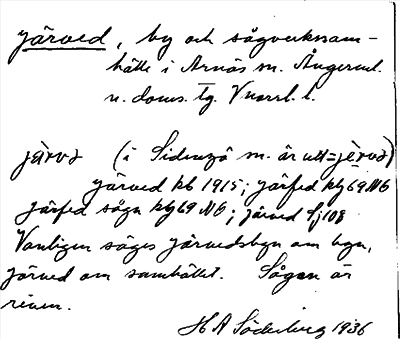 Järved, by och sågverkssam-
hälle i Arnäs sn. Ångerml.
n. doms. tg. Vnorrl. l.
järvə (i Sidensjö sn. är utt = jèrvə)
Järved kb 1915; Järfed kbg 69 NG
Järfed sågn kbg 69 NG; Järved Sj 108
Vanligen säges Järvedsbyn om byn,
Järved om samhället. Sågen är
riven.
H A Söderberg 1936